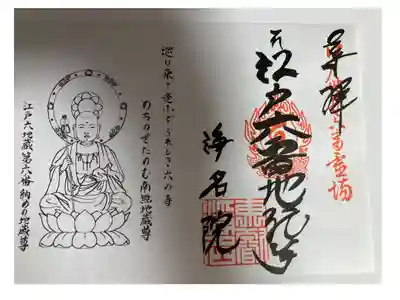 奉拝
江戸六番地蔵尊
浄名院
巡り来て逢ふぞうれしき六の寺
のちのせたのむ南無地蔵尊
江戸六地蔵第六番納めの地蔵尊